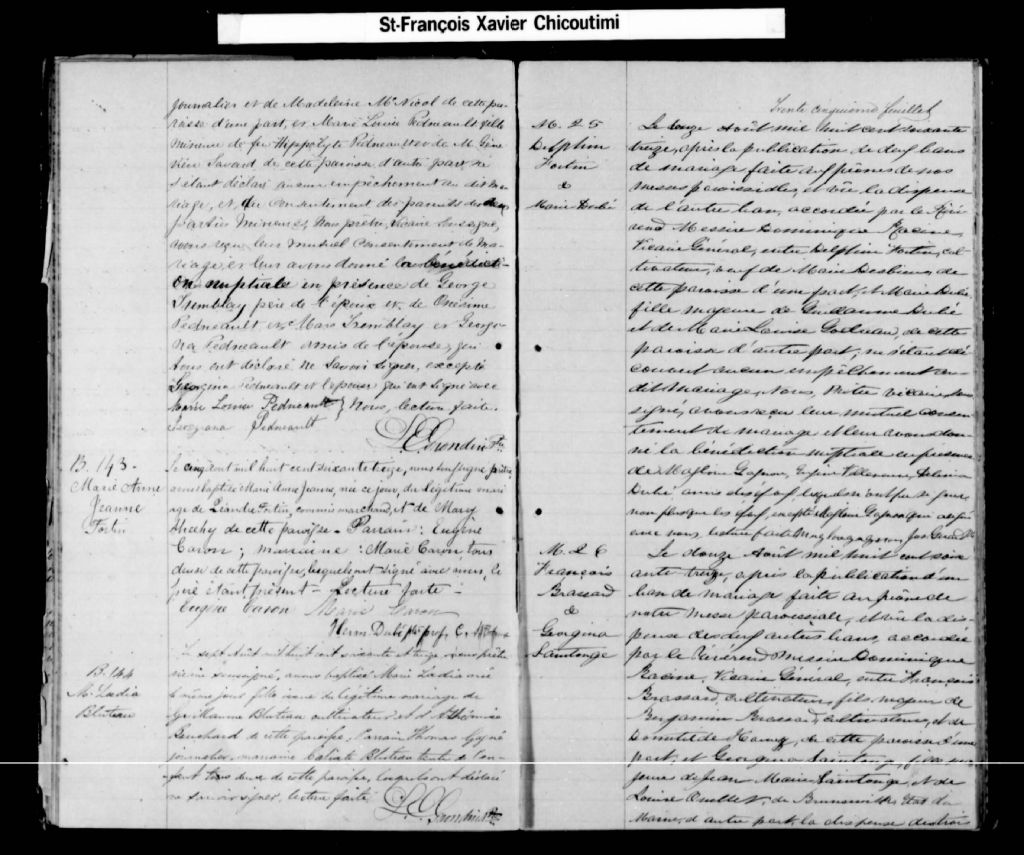 St-François Xavier Chicoutimi
journalier et de Madeleine McNicol de cette pa-
roisse d'une part, et Marie Louise Pedneault fille
mineure de feu Hippolyte Pedneault et de M. Gene-
viève Savard de cette paroisse d'autre part, ne
s'étant déclaré aucun empêchement au dit ma-
riage, et du consentement des parents des
parties mineures, Nous prêtre, Vicaire Soussigné,
avons reçu leur mutuel consentement de ma-
riage et leur avons donné la bénédicti-
on nuptiale en présence de George
Tremblay père de l'époux et de Onésime
Pedneault et Mars Tremblay et Georgi-
na Pedneault amis de l'épouse, qui
tous ont déclaré ne savoir signer, excepté
Georgina Pedneault et l'épouse qui ont signé avec
Marie Louise Pedneault } Nous, lecture faite.
Georgiana Pedneault
L. Grondin Ptre
B. 143 -
Marie Anne
Jeanne
Fortin
Le cinq août mil huit cent soixante treize, nous soussigné prêtre,
avons baptisé Marie Anne Jeanne, née ce jour, du légitime mari
age de Léandre Fortin, commis marchand, et de Mary
Sheehy de cette paroisse - Parrain : Eugène
Caron ; marraine : Marie Caron tous
deux de cette paroisse, lesquels ont signé avec nous, le
père étant présent - Lecture faite -
Eugène Caron Marie Caron
Herm. Dubé ptre prof.
B. 144
M. Ladia
Bluteau
Le sept Août mil huit cent soixante et treize nous prêtre
vicaire soussigné, avons baptisé Marie Ladia née
le même jour fille issue du légitime mariage de
Germaine Bluteau cultivateur et d'Athémise
Bouchard de cette paroisse, Parrain Thomas Gagné
journalier, marraine Bluteau tante de l'en-
fant tous deux de cette paroisse, lesquels ont déclaré
ne savoir signer, lecture faite
L. Grondin Ptre
Trente cinquième feuillet
M. 25
Delphin
Fortin
&
Marie Dubé
Le onze Août mil huit cent soixante
treize, après la publication de deux bans
de mariage faite aux prônes de nos
messes paroissiales, et vu la dispense
de l'autre ban, accordée par le Révé-
rend Messire Dominique Racine,
Vicaire Général, entre Delphin Fortin, cul-
tivateur, veuf de Marie Desbiens, de
cette paroisse d'une part, et Marie Dubé,
fille majeure de Guillaume Dubé
et de Marie Louise de cette
paroisse d'autre part, ne s'étant dé-
couvert aucun empêchement au
dit Mariage, Nous, Prêtre vicaire, sous
signé, avons reçu leur mutuel consen-
tement de mariage et leur avons don-
né la bénédiction nuptiale en présence
de Magloire Gagnon, Villeneuve,
Dubé amis
non plus que les époux, excepté Magloire Gagnon qui a signé
avec nous, lecture faite Magloire Gagnon
M. 26
François
Brassard
&
Georgina
Saintonge
Le douze Août mil huit cent soix
ante treize, après la publication d'un
ban de mariage faite au prône de
notre messe paroissiale, et vu la dis-
pense des deux autres bans, accordée
par le Révérend Messire Dominique
Racine, Vicaire Général, entre François
Brassard, cultivateur, fils majeur de
Benjamin Brassard, cultivateur, et de
Domitilde Harvey, de cette paroisse d'une
part, et Georgina Saintonge, fille ma-
jeure de Jean Marie Saintonge, et de
Louise Ouellet, de Brunswick, État du
Maine, d'autre part, la dispense des trois